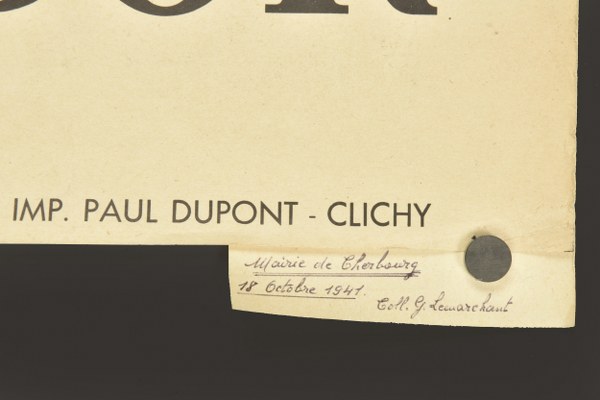 IMP. PAUL DUPONT - CLICHY
Mairie de Cherbourg
18 Octobre 1941.
Coll. G. Lemarchant